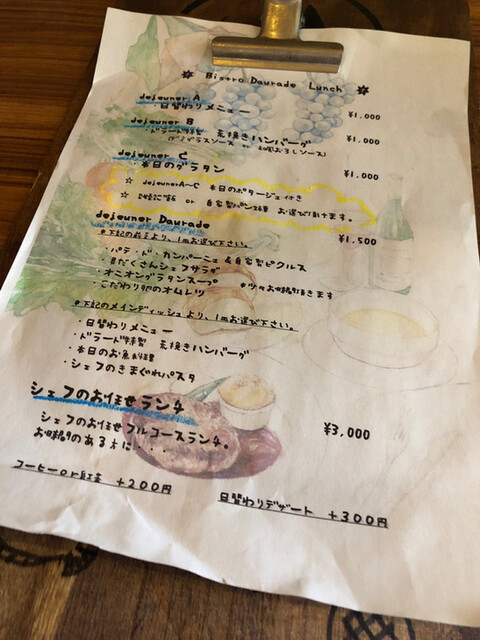 ✲ Bistro Daurade Lunch ✲
dejeuner A ¥1,000
日替わりメニュー
dejeuner B ¥1,000
ドラード特製 荒挽きハンバーグ
(デミグラスソース or 和風おろしソース)
dejeuner C ¥1,000
本日のグラタン
☆ dejeunerA~C 本日のポタージュ付き
☆ or 自家製パン2種 お選び頂けます。
dejeuner Daurade ¥1,500
◎下記の前菜より、1皿お選び下さい。
・パテ・ド・カンパーニュ & 自家製ピクルス
・具だくさんシェフサラダ
・オニオングラタンスープ
・こだわり卵のオムレツ
◎下記のメインディッシュより、1皿お選び下さい。
・日替わりメニュー
・ドラード特製 荒挽きハンバーグ
・本日のお魚料理
・シェフのきまぐれパスタ
シェフのお任せランチ
シェフのお任せフルコースランチ。 ¥3,000
お時間のある方に・・・
コーヒーor紅茶 +200円
日替わりデザート +300円